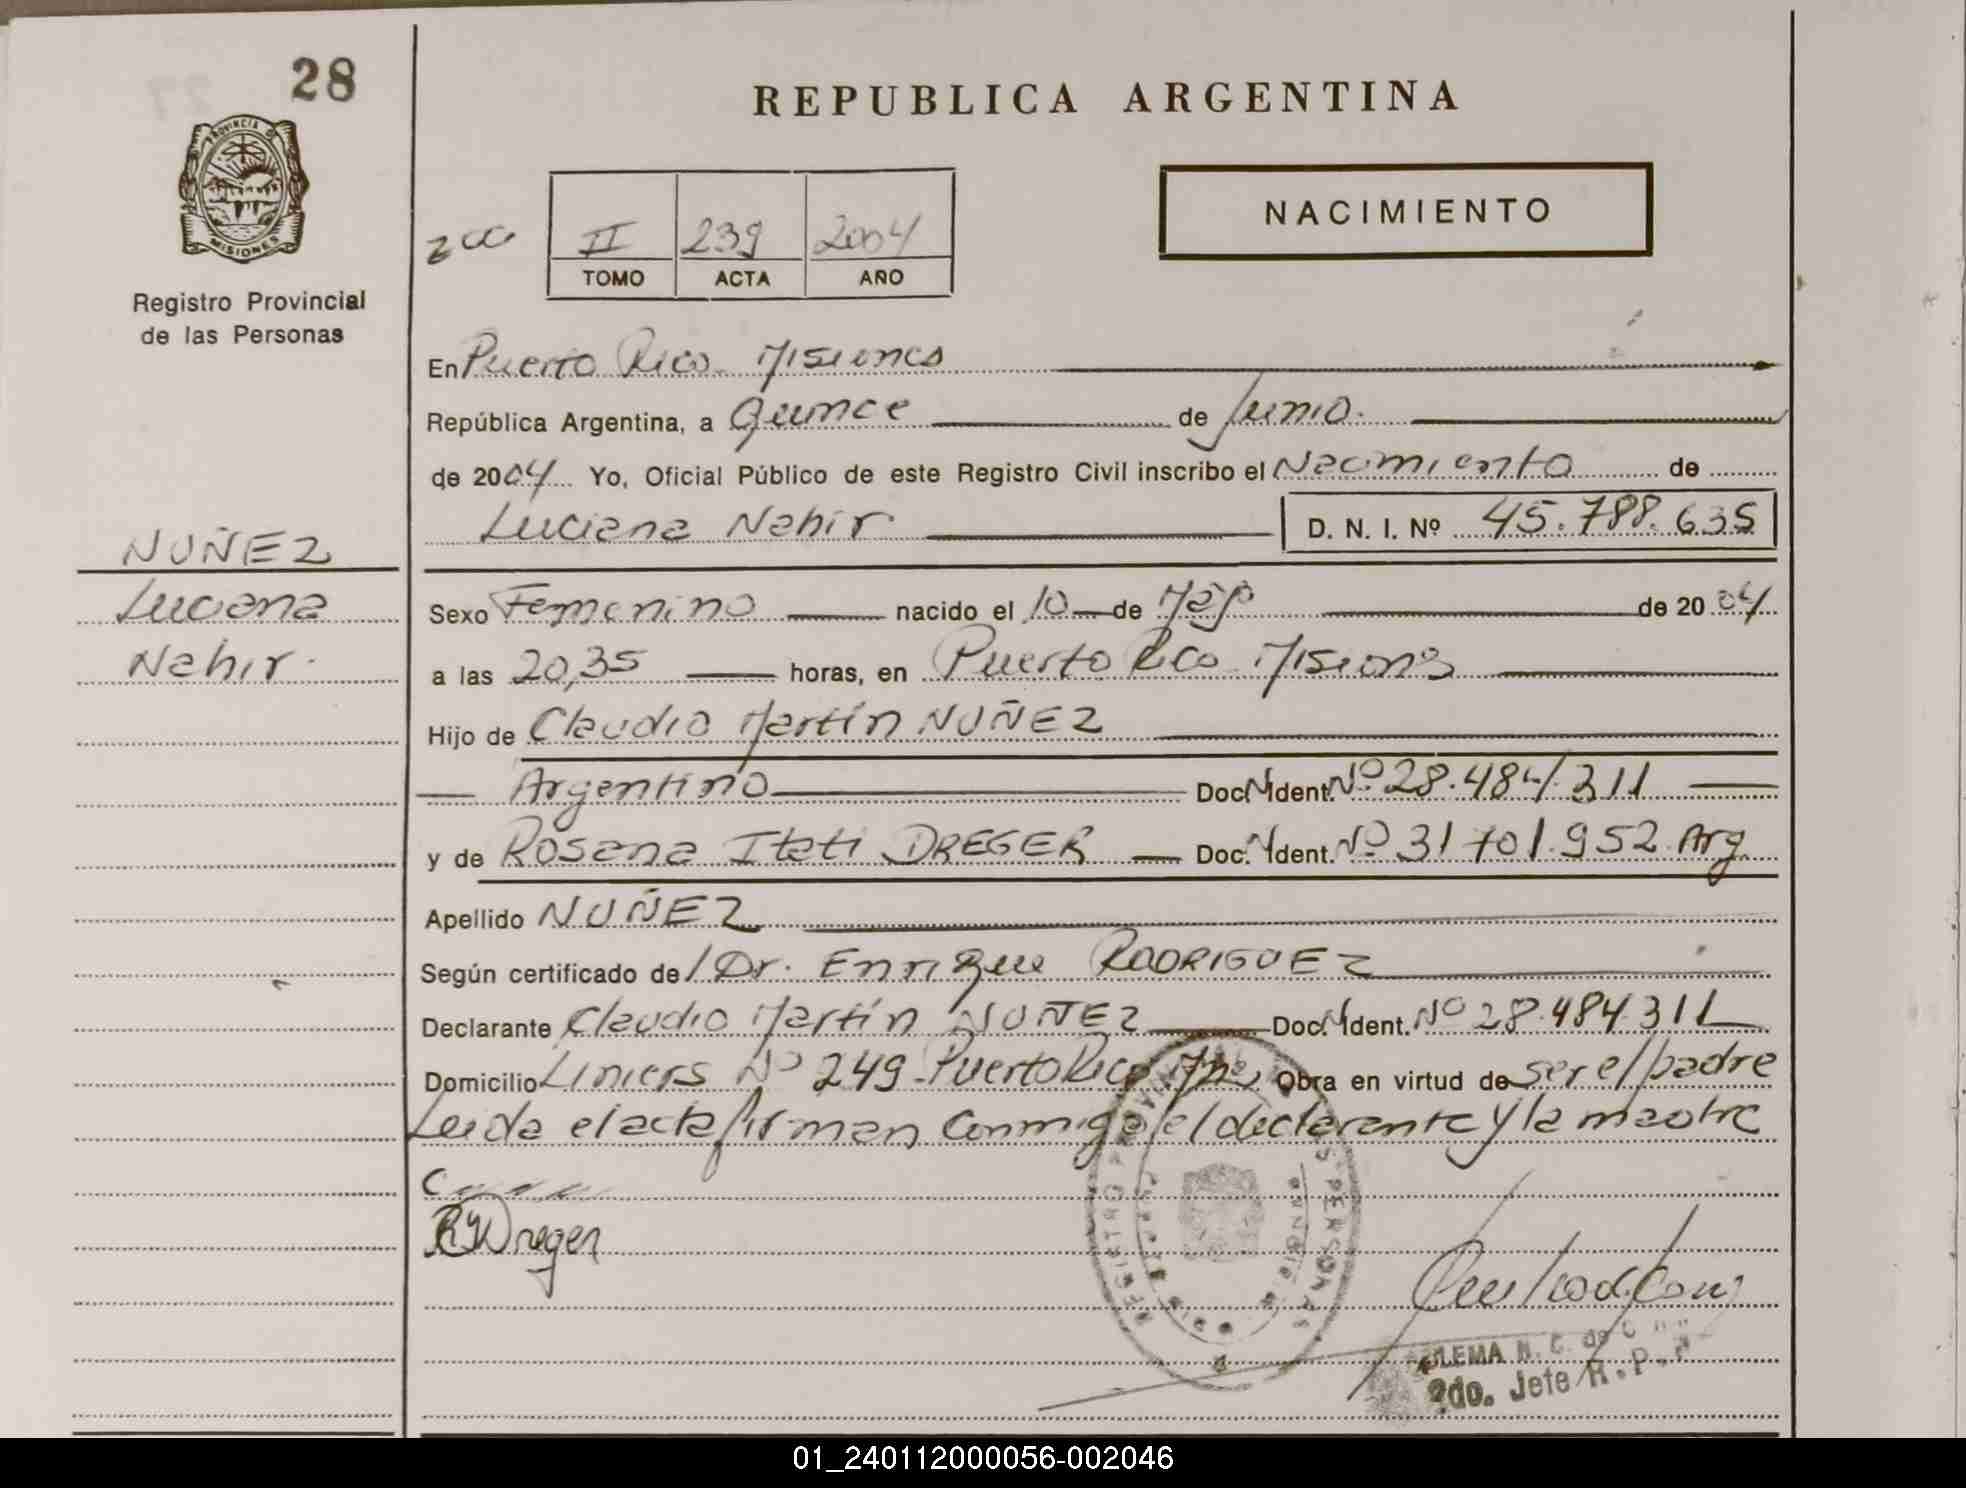 28
REPUBLICA ARGENTINA
PROVINCIA DE
MISIONES
Registro Provincial
de las Personas
II 239 2004
TOMO ACTA AÑO
NACIMIENTO
En Puerto Rico Misiones
República Argentina, a Quince de Junio.
de 2004 Yo, Oficial Público de este Registro Civil inscribo el Nacimiento de
Luciana Nahir D. N. I. Nº 45.788.635
NUÑEZ
Luciana
Nahir.
Sexo Femenino nacido el 10 de Mayo de 2004
a las 20,35 horas, en Puerto Rico Misiones
Hijo de Claudio Martín NUÑEZ
Argentino Doc. N. Ident. Nº 28.484.311
y de Rosana Itati DREGER Doc. N. Ident. Nº 31701.952 Arg.
Apellido NUÑEZ
Según certificado de/Dr. Enrique RODRIGUEZ
Declarante Claudio Martín NUÑEZ Doc. N. Ident. Nº 28.484.311
Domicilio Liniers Nº 249 Puerto Rico Mnes Obra en virtud de ser el padre
Leida el acta firman conmigo el declarante y la madre
R Dreger
REGISTRO PERSONAS
LEMA N. C. de
2do. Jefe R.P.
01_240112000056-002046